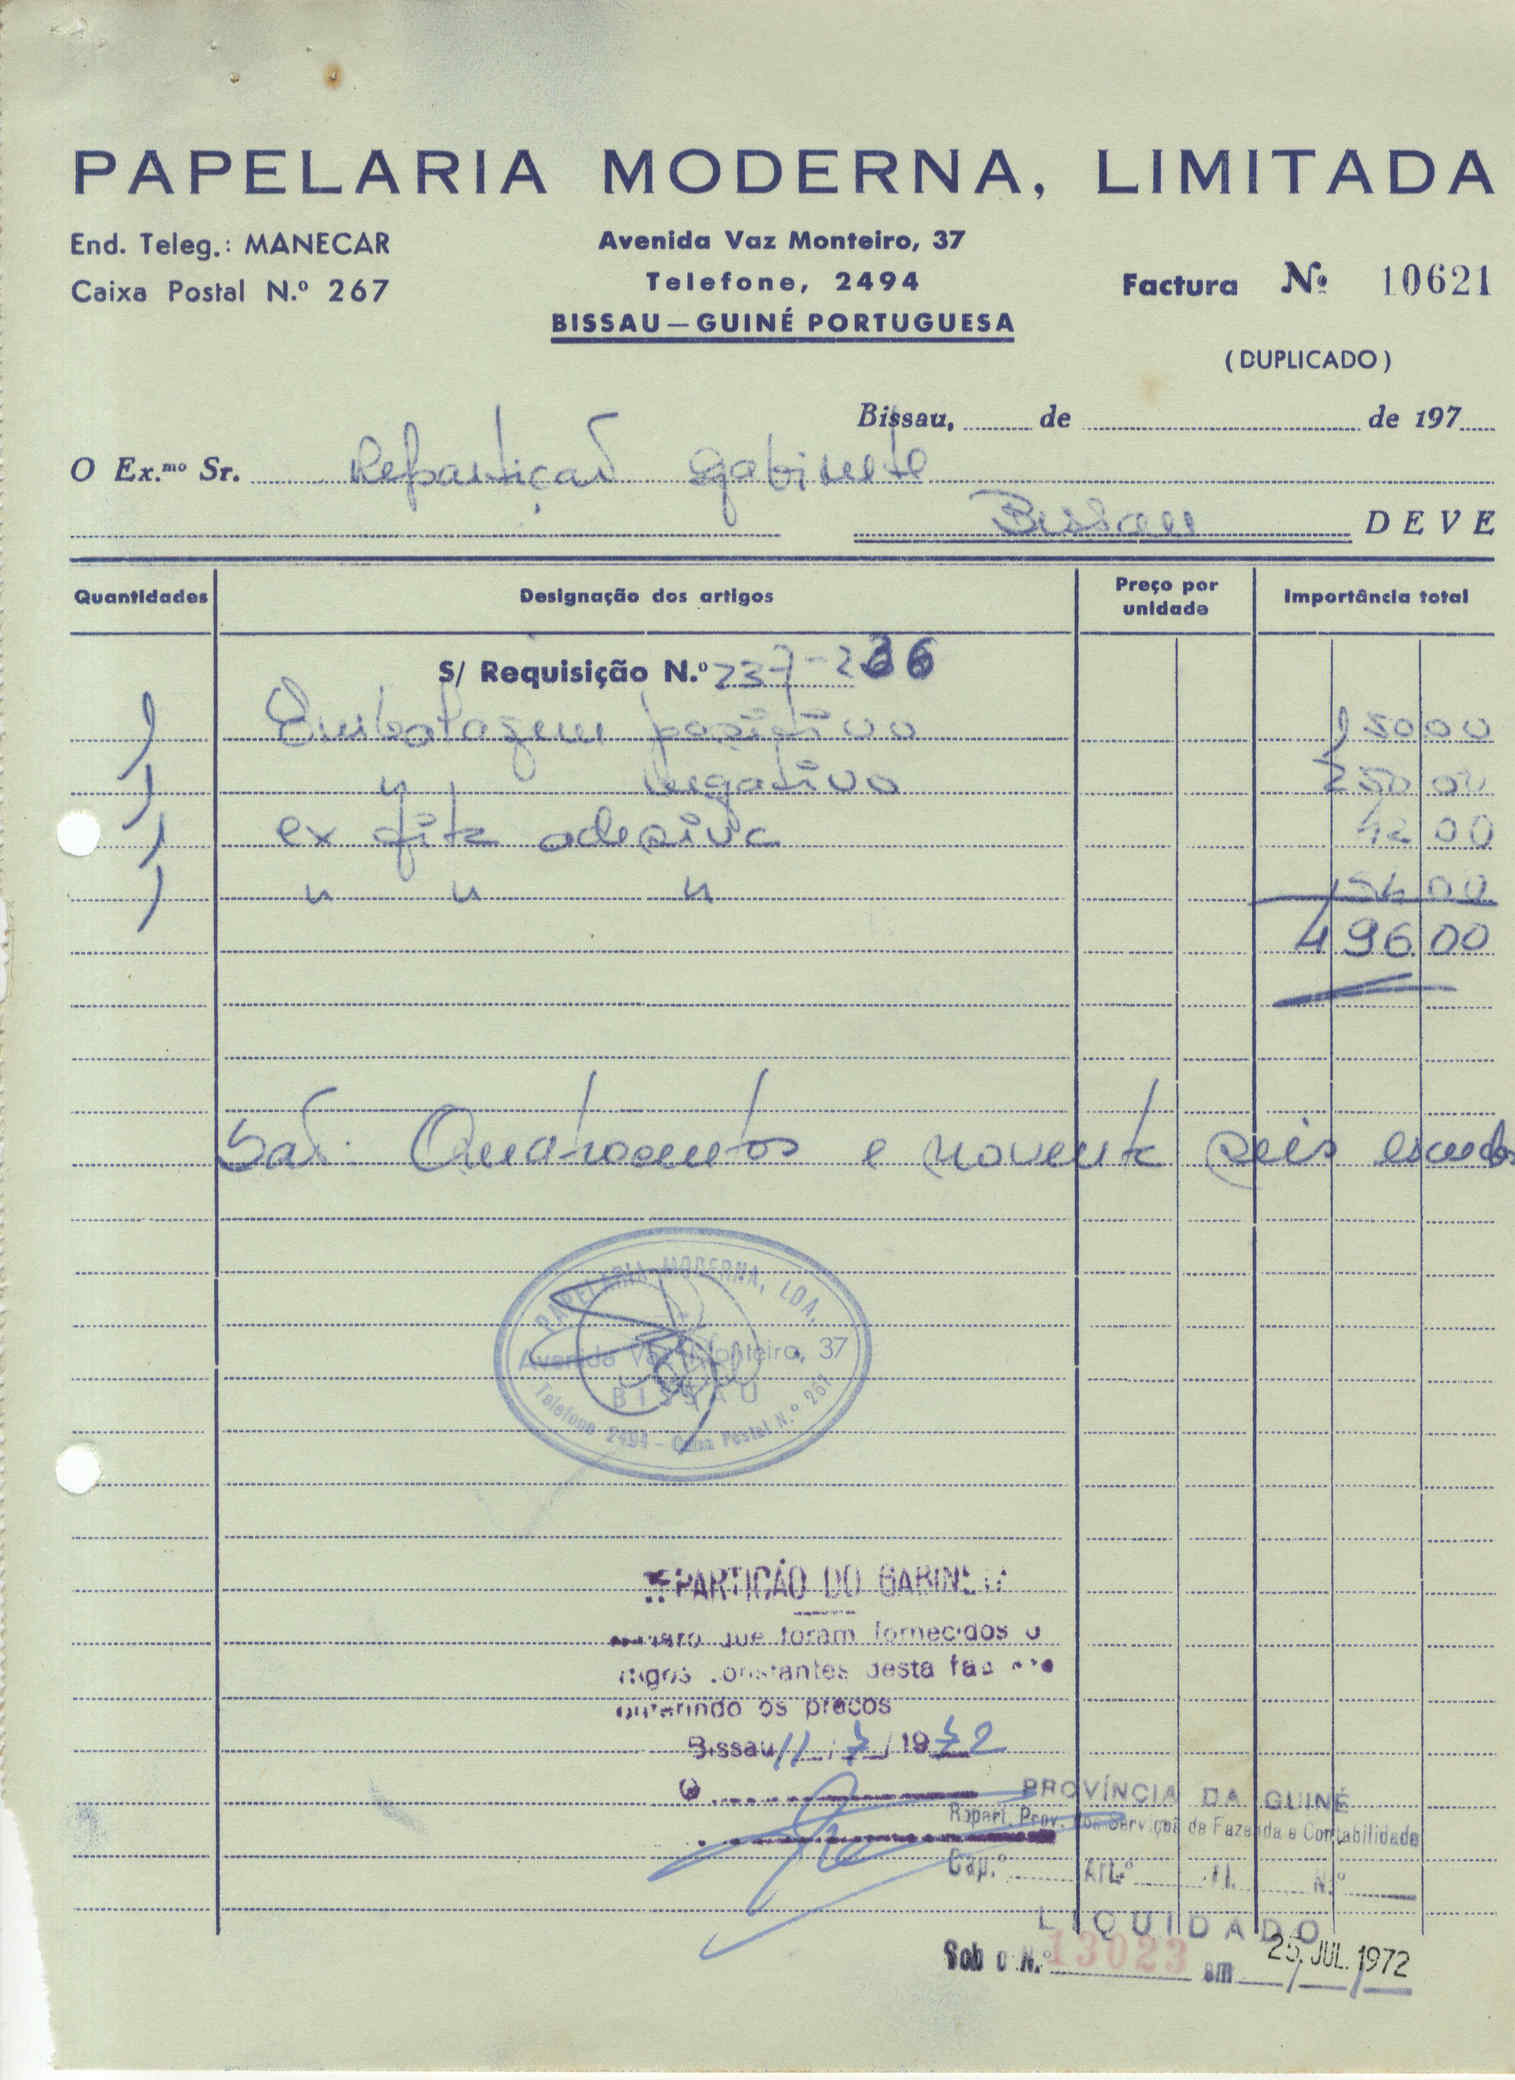 PAPELARIA MODERNA, LIMITADA
End. Teleg.: MANECAR
Caixa Postal N.º 267
Avenida Vaz Monteiro, 37
Telefone, 2494
BISSAU — GUINÉ PORTUGUESA
Factura Nº 10621
(DUPLICADO)
Bissau, de de 197
O Ex.mo Sr. Repartição Gabinete
Bissau DEVE
Quantidades Designação dos artigos Preço por unidade Importância total
S/ Requisição N.º 237-236
1 Embalagem positivo 150 00
1 " negativo 250 00
1 ex fita adesiva 42 00
1 " " " 54 00
496 00
São: Quatrocentos e noventa seis escudos
PAPELARIA MODERNA, LDA.
Avenida Vaz Monteiro, 37
BISSAU
Telefone 2494 - Caixa Postal N.º 267
PARTIÇÃO DO GABINETE
que foram fornecidos o
constantes desta
os preços
Bissau 11/7/1972
O
PROVÍNCIA DA GUINÉ
Repart. Prov. dos Serviços de Fazenda e Contabilidade
Cap.º Art.º n. N.º
LIQUIDADO
Sob o N.º 13023 em 25. JUL. 1972